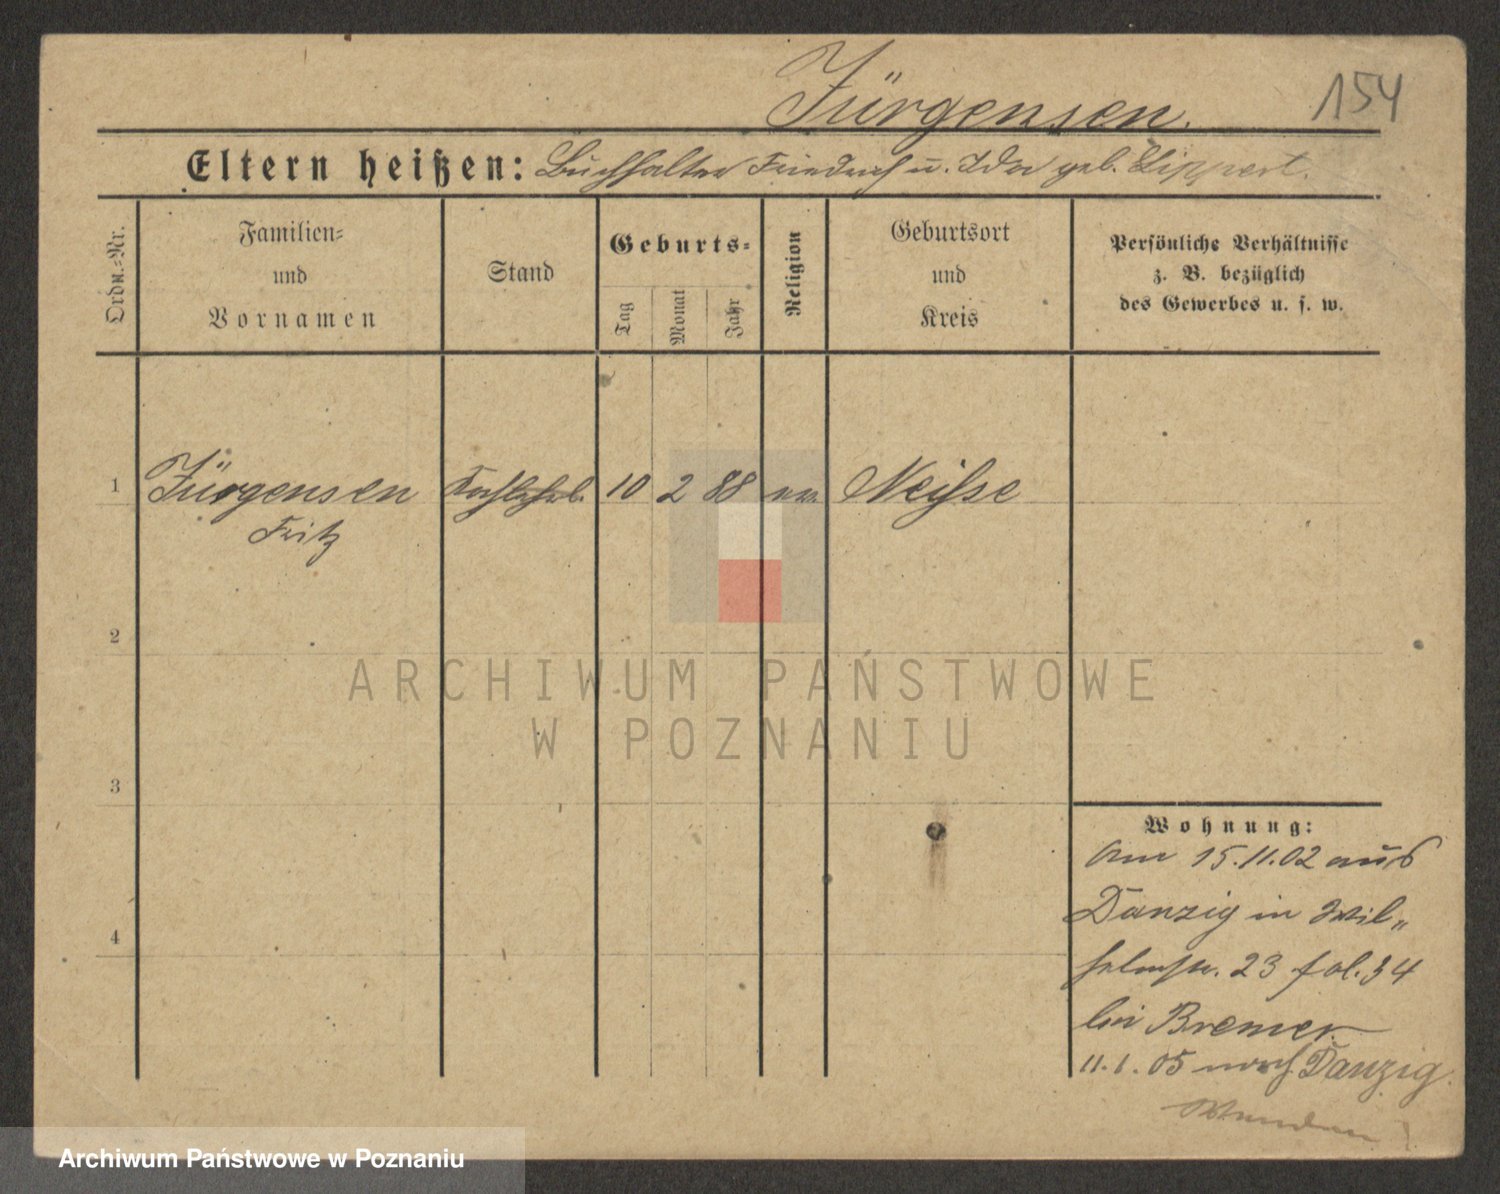 Jürgensen.
154
Eltern heißen: Buchhalter Friedrich u. Ida geb. Lippert.
Ordn.-Nr.
Familien-
und
Vornamen
Stand
Geburts-
Tag
Monat
Jahr
Religion
Geburtsort
und
Kreis
Persönliche Verhältnisse
z. B. bezüglich
des Gewerbes u. s. w.
1
Jürgensen
Fritz
10
2
88
ev.
Neisse
2
3
4
Wohnung:
Am 15.11.02 aus
Danzig in Wil-
helmstr. 23 fol. 34
bei Bremer
11.1.05 nach Danzig.
ARCHIWUM PAŃSTWOWE
W POZNANIU
Archiwum Państwowe w Poznaniu